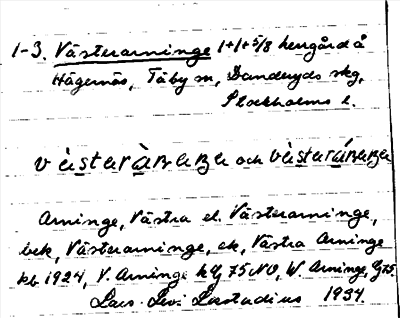 1-3. Västerarninge 1+1+5/8 herrgård å
Hägernäs, Täby sn, Danderyds skg,
Stockholms l.
och
Arninge, Västra el. Västerarninge,
bek, Västerarninge, ek, Västra Arninge
kb 1924, V. Arninge hLg 75 NO, W. Arninge, Lg 75
Lars-Levi Læstadius 1934.